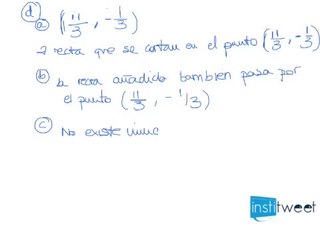 d
a) (11/3, -1/3)
2 recta que se cortan en el punto (11/3, -1/3)
b) la recta añadido tambien pasa por
el punto (11/3, -1/3)
c) No existe
institweet